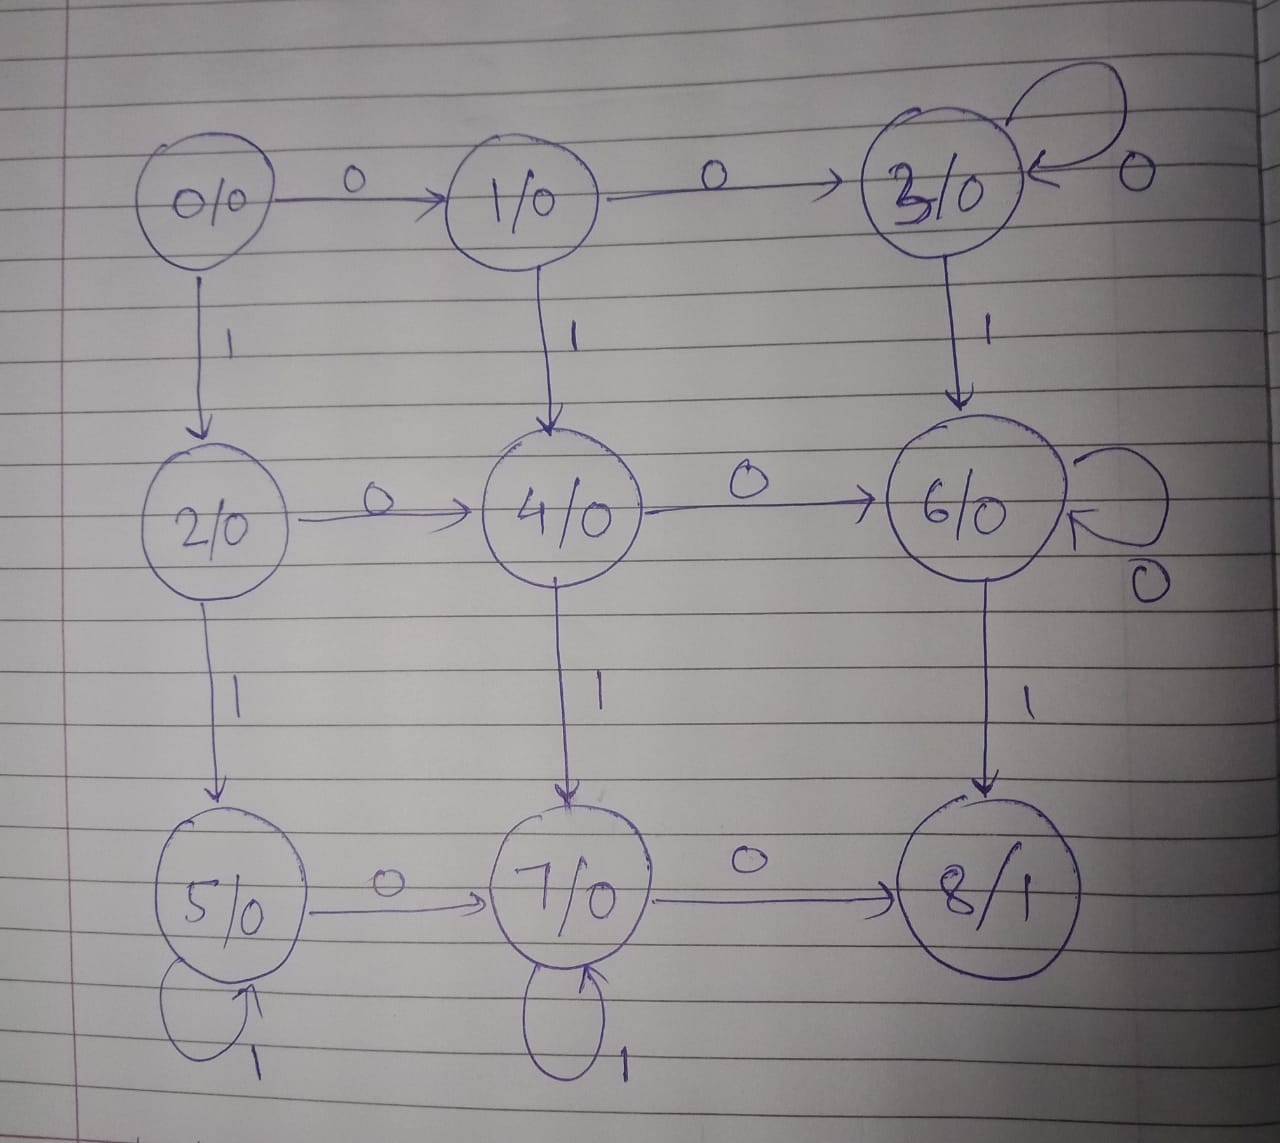 0/0 0 1/0 0 3/0 0
1 1 1
2/0 0 4/0 0 6/0 0
1 1 1
5/0 0 7/0 0 8/1
1 1